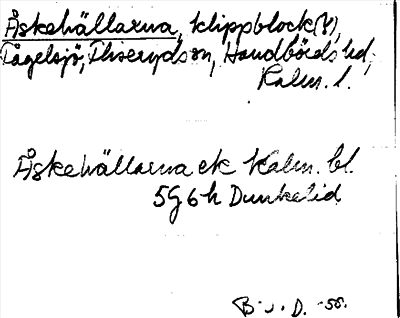 Åskehällarna, klippblock(?),
Tagelsjö, Fliseryds sn, Handbörds hd,
Kalm. l.
Åskehällarna ek Kalm. bl.
5G 6h Dunkelid
B. J. D. -58.